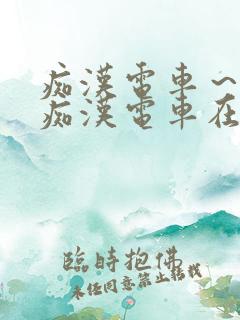 痴漢電車～
痴漢電車在
臨時抱佛
未任同意禁止转载